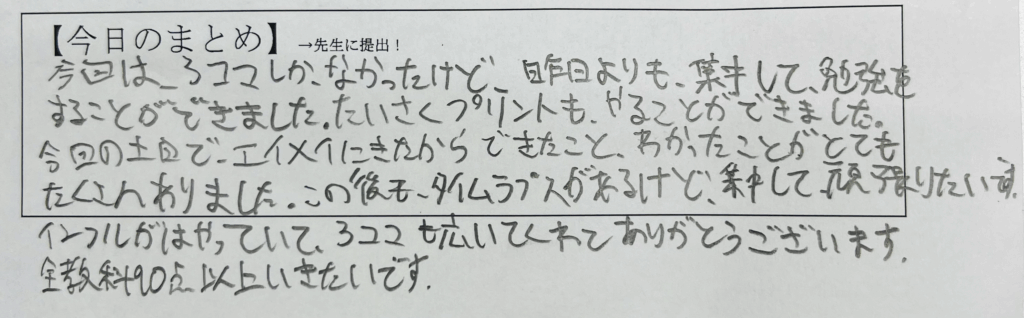 【今日のまとめ】→先生に提出！
今回は、3コマしか、なかったけど、昨日よりも、集中して、勉強を
することができました。たいさくプリントも、やることができました。
今回の土日で、エイメイにきたからできたこと、わかったことがとても
たくさんありました。この後も、タイムラプスがあるけど、集中して、頑張りたいです。
インフルがはやっていて、3コマも開いてくれてありがとうございます。
全教科90点以上いきたいです。